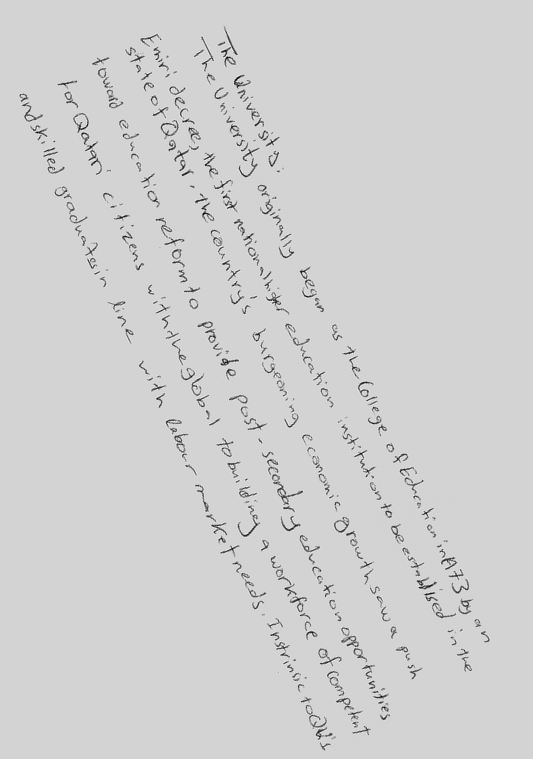 The University:
The University originally began as the College of Education in 1973 by an
Emiri decree, the first national higher education institution to be establised in the
state of Qatar. The country's burgeoning economic growth saw a push
toward education reform to provide post-secondary education opportunities
for Qatari citizens with the global to building a workforce of competent
and skilled graduates in line with labour market needs. Instrinsic to QU's